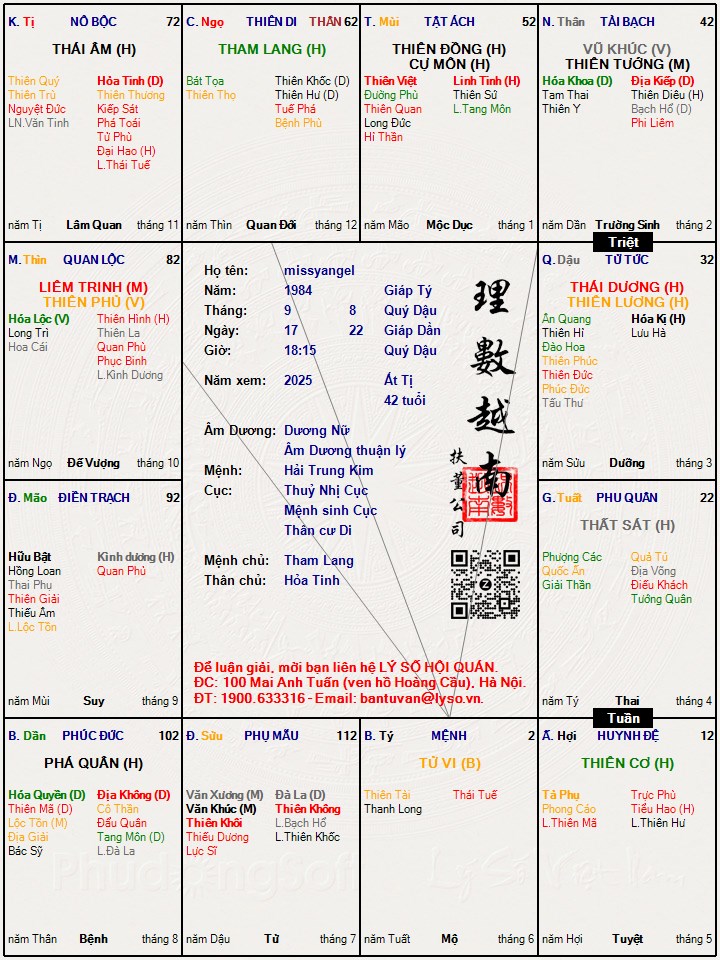 K. Tị NÔ BỘC 72
THÁI ÂM (H)
Thiên Quý
Thiên Trù
Nguyệt Đức
LN.Văn Tinh
Hỏa Tinh (D)
Thiên Thương
Kiếp Sát
Phá Toái
Tử Phù
Đại Hao (H)
L.Thái Tuế
năm Tị Lâm Quan tháng 11
C. Ngọ THIÊN DI THÂN 62
THAM LANG (H)
Bát Tọa
Thiên Thọ
Thiên Khốc (D)
Thiên Hư (D)
Tuế Phá
Bệnh Phù
năm Thìn Quan Đới tháng 12
T. Mùi TẬT ÁCH 52
THIÊN ĐỒNG (H)
CỰ MÔN (H)
Thiên Việt
Đường Phù
Thiên Quan
Long Đức
Hỉ Thần
Linh Tinh (H)
Thiên Sứ
L.Tang Môn
năm Mão Mộc Dục tháng 1
N. Thân TÀI BẠCH 42
VŨ KHÚC (V)
THIÊN TƯỚNG (M)
Hóa Khoa (D)
Tam Thai
Thiên Y
Địa Kiếp (D)
Thiên Diêu (H)
Bạch Hổ (D)
Phi Liêm
năm Dần Trường Sinh tháng 2
Triệt
M. Thìn QUAN LỘC 82
LIÊM TRINH (M)
THIÊN PHỦ (V)
Hóa Lộc (V)
Long Trì
Hoa Cái
Thiên Hình (H)
Thiên La
Quan Phù
Phục Binh
L.Kình Dương
năm Ngọ Đế Vượng tháng 10
Họ tên: missyangel
Năm: 1984 Giáp Tý
Tháng: 9 8 Quý Dậu
Ngày: 17 22 Giáp Dần
Giờ: 18:15 Quý Dậu
Năm xem: 2025 Ất Tị
42 tuổi
Âm Dương: Dương Nữ
Âm Dương thuận lý
Mệnh: Hải Trung Kim
Cục: Thuỷ Nhị Cục
Mệnh sinh Cục
Thân cư Di
Mệnh chủ: Tham Lang
Thân chủ: Hỏa Tinh
理數越南
扶董公司
Để luận giải, mời bạn liên hệ LÝ SỐ HỘI QUÁN.
ĐC: 100 Mai Anh Tuấn (ven hồ Hoàng Cầu), Hà Nội.
ĐT: 1900.633316 - Email: bantuvan@lyso.vn.
Q. Dậu TỬ TỨC 32
THÁI DƯƠNG (H)
THIÊN LƯƠNG (H)
Ân Quang
Thiên Hỉ
Đào Hoa
Thiên Phúc
Thiên Đức
Phúc Đức
Tấu Thư
Hóa Kị (H)
Lưu Hà
năm Sửu Dưỡng tháng 3
Đ. Mão ĐIỀN TRẠCH 92
Hữu Bật
Hồng Loan
Thai Phụ
Thiên Giải
Thiếu Âm
L.Lộc Tồn
Kình dương (H)
Quan Phủ
năm Mùi Suy tháng 9
G. Tuất PHU QUÂN 22
THẤT SÁT (H)
Phượng Các
Quốc Ấn
Giải Thần
Quả Tú
Địa Võng
Điếu Khách
Tướng Quân
năm Tý Thai tháng 4
Tuần
B. Dần PHÚC ĐỨC 102
PHÁ QUÂN (H)
Hóa Quyền (D)
Thiên Mã (D)
Lộc Tồn (M)
Địa Giải
Bác Sỹ
Địa Không (D)
Cô Thần
Đẩu Quân
Tang Môn (D)
L.Đà La
năm Thân Bệnh tháng 8
Đ. Sửu PHỤ MẪU 112
Văn Xương (M)
Văn Khúc (M)
Thiên Khôi
Thiếu Dương
Lực Sĩ
Đà La (D)
Thiên Không
L.Bạch Hổ
L.Thiên Khốc
năm Dậu Tử tháng 7
B. Tý MỆNH 2
TỬ VI (B)
Thiên Tài
Thanh Long
Thái Tuế
năm Tuất Mộ tháng 6
Ấ. Hợi HUYNH ĐỆ 12
THIÊN CƠ (H)
Tả Phụ
Phong Cáo
L.Thiên Mã
Trực Phù
Tiểu Hao (H)
L.Thiên Hư
năm Hợi Tuyệt tháng 5